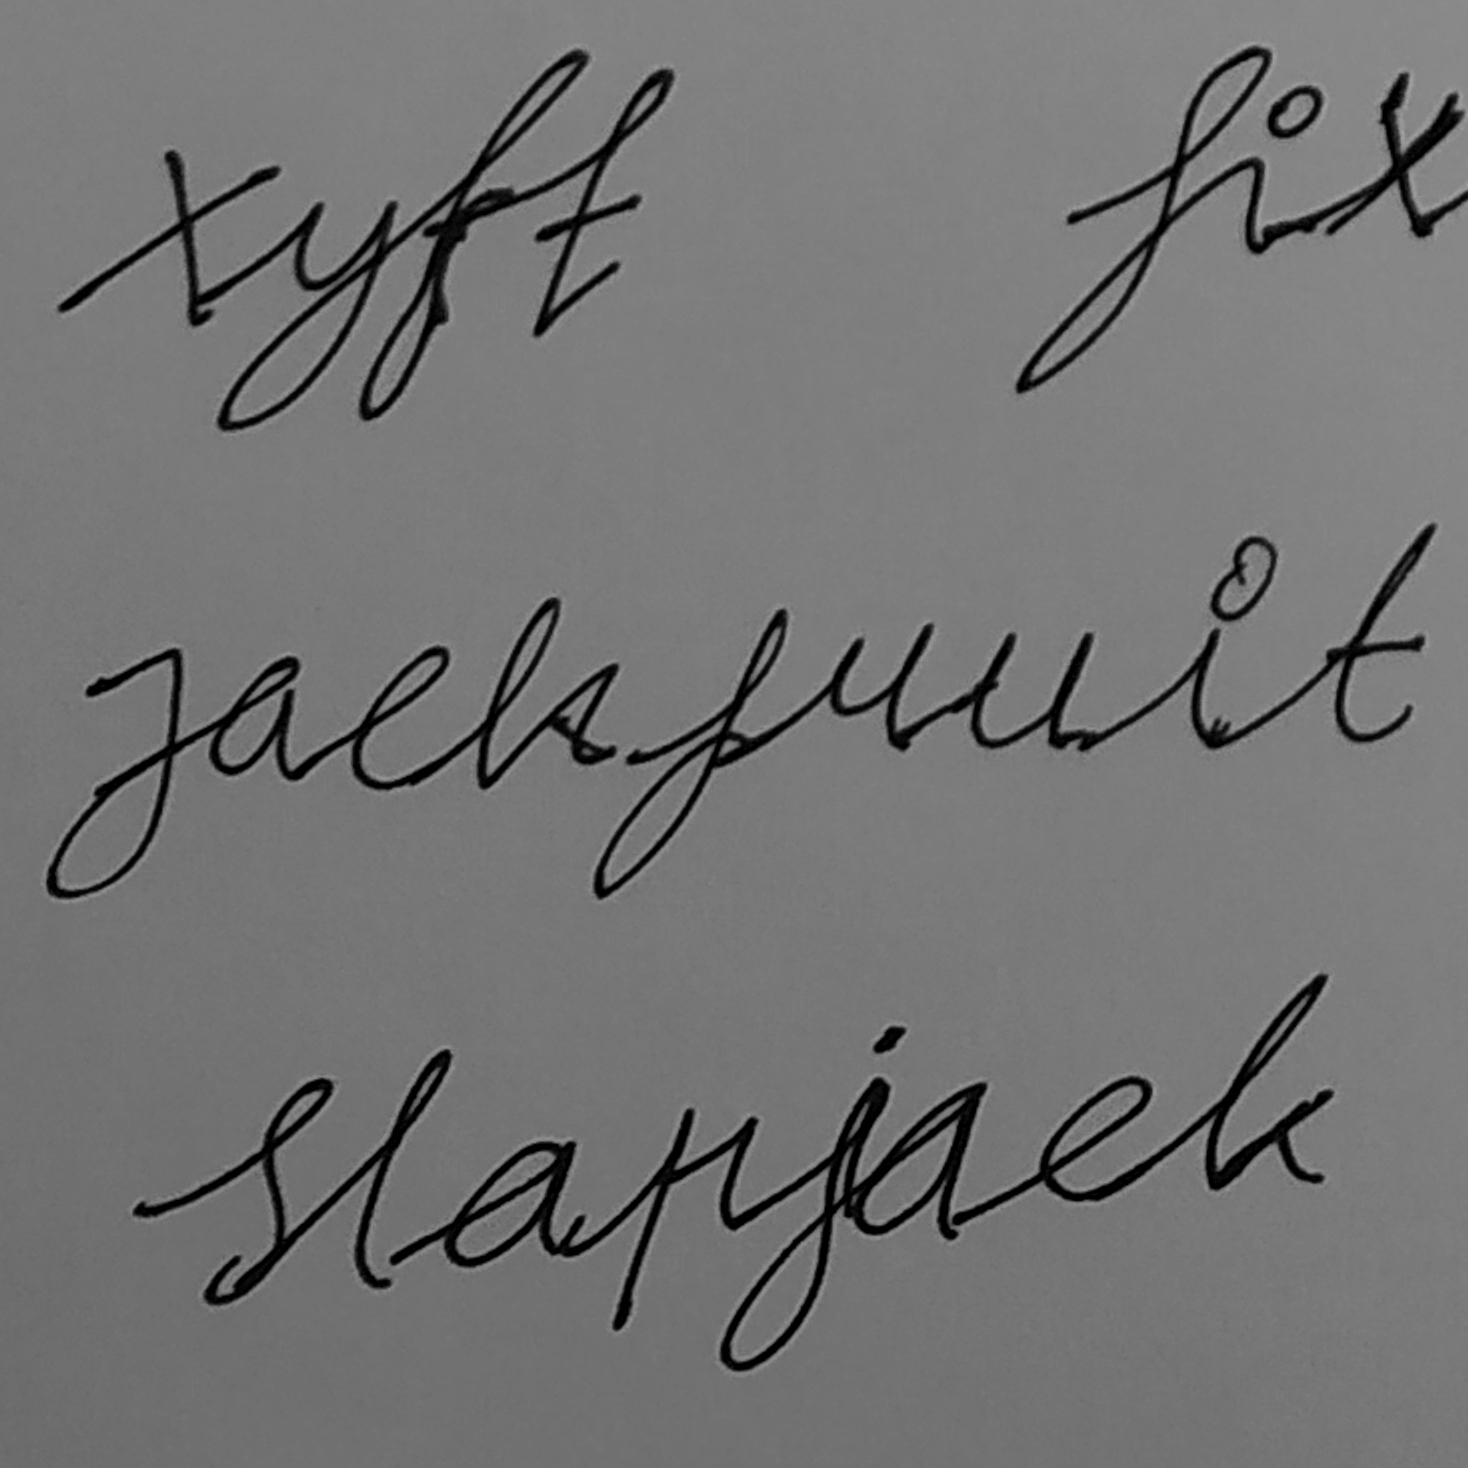 xyft fix
Jackfruit
Slapjack